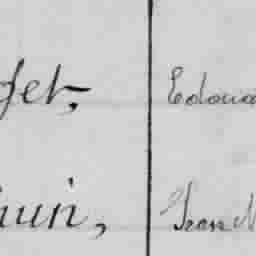 get, Edoua
uin, Jean M